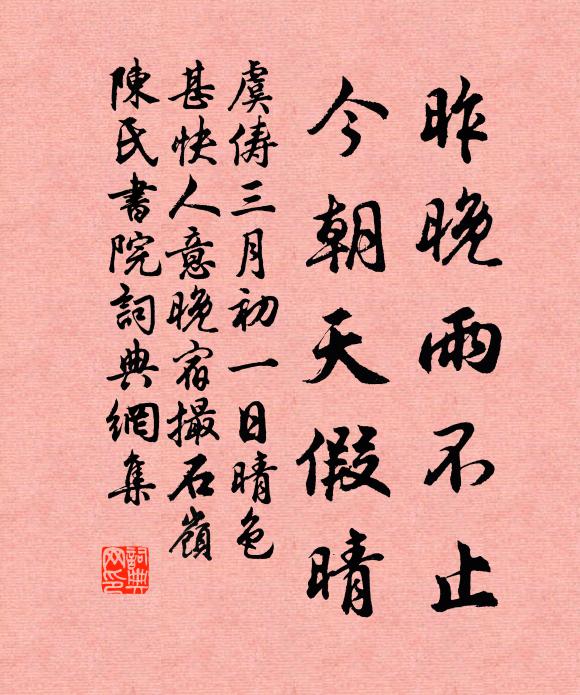 昨晚雨不止
今朝天假晴
虞俦三月初一日晴色
甚快人意晚宿撮石嶺
陳氏書院詞典網集
詞典网印